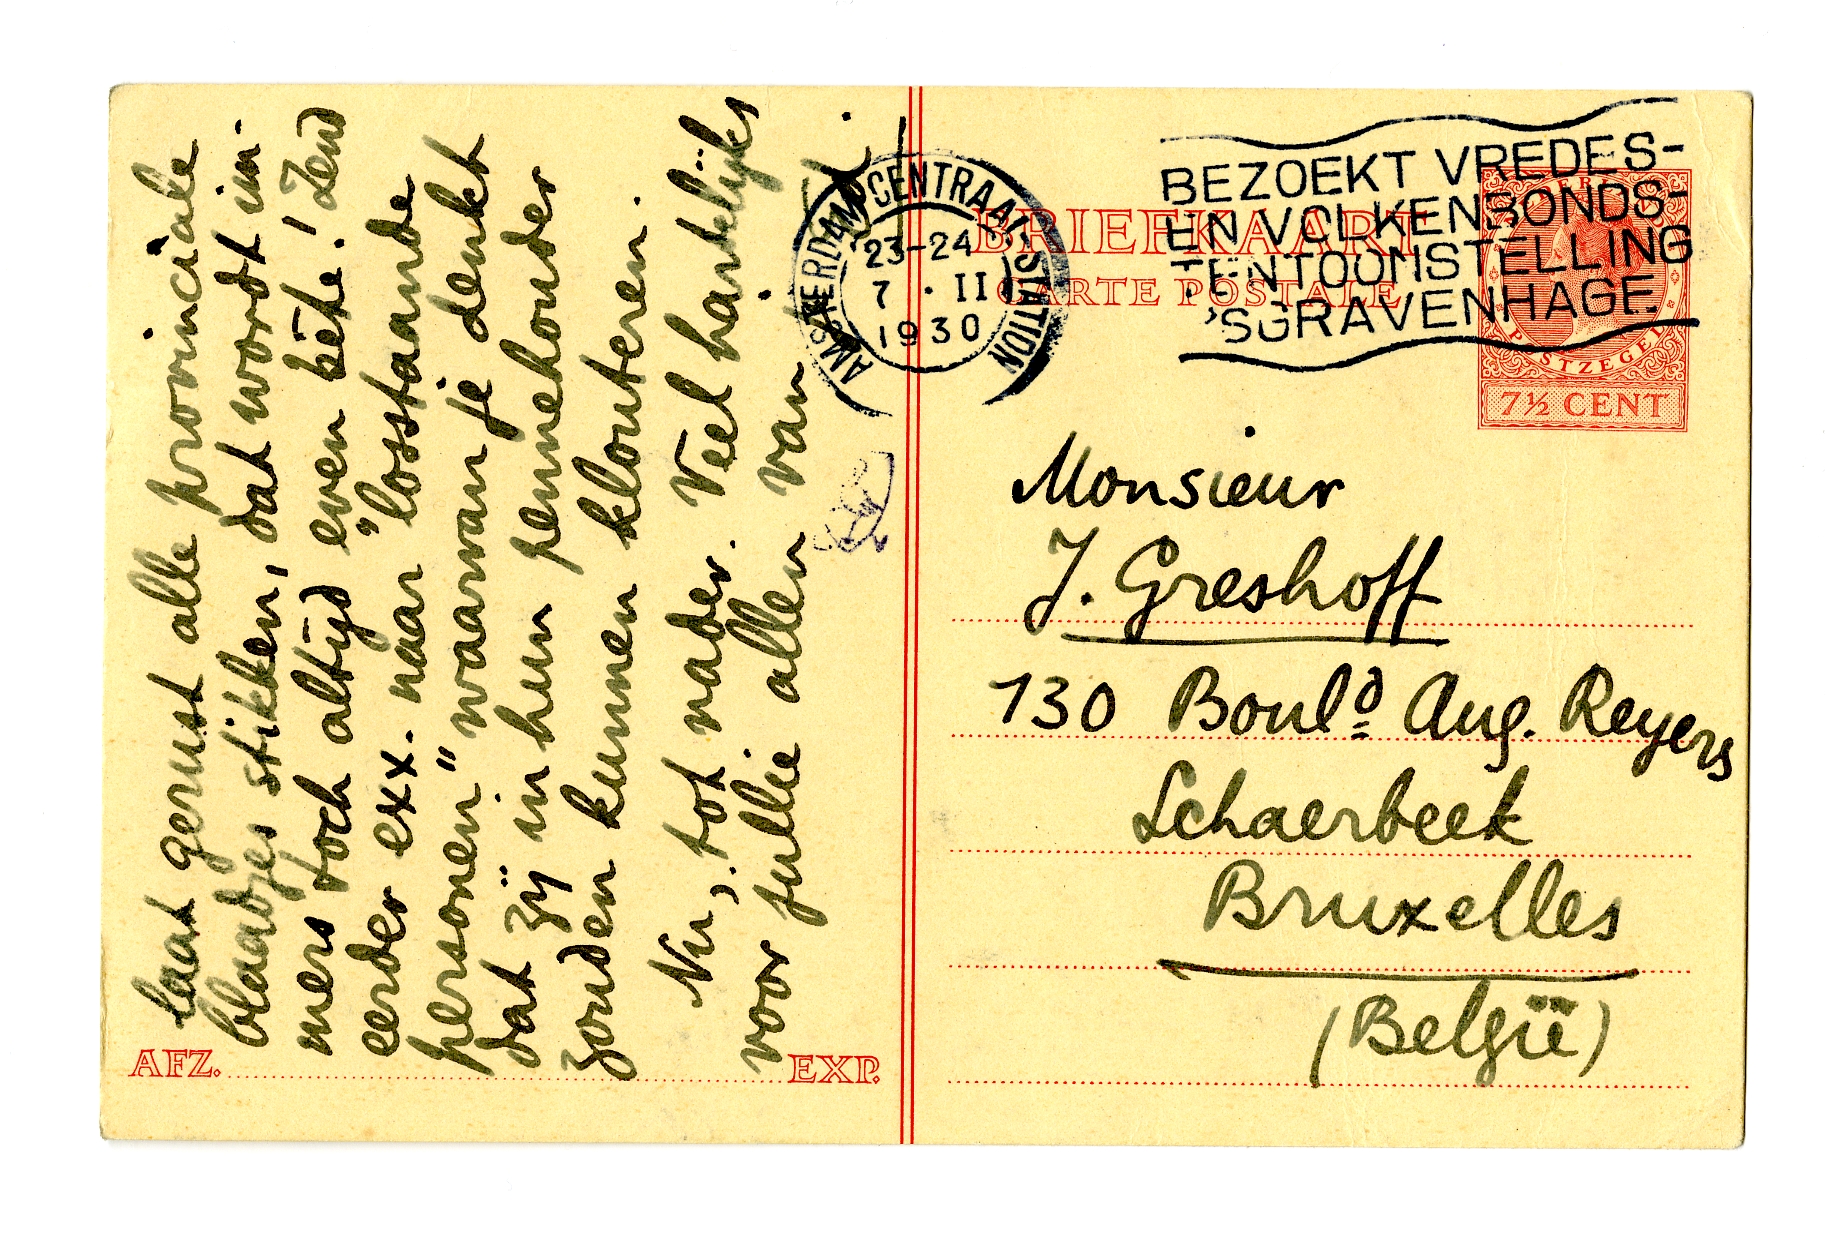 laat gerust alle provinciale
blaadjes stikken, dat wordt im-
mers toch altijd even bête! Zend
eerder exx. naar "losstaande
personen" waarvan je denkt
dat zij in hun pennehouder
zouden kunnen klouteren.
Nu, tot nader. Veel hartelijks
voor jullie allen van
AFZ. EXP.
AMSTERDAM CENTRAAL-STATION
23-24
7 . II
1930
BEZOEKT VREDES-
EN VOLKENBONDS-
TENTOONSTELLING
'SGRAVENHAGE
BRIEFKAART
CARTE POSTALE
POSTZEGEL
7½ CENT
Monsieur
J. Greshoff
130 Boul<sup>d</sup> Aug. Reyers
Schaerbeek
Bruxelles
(België)